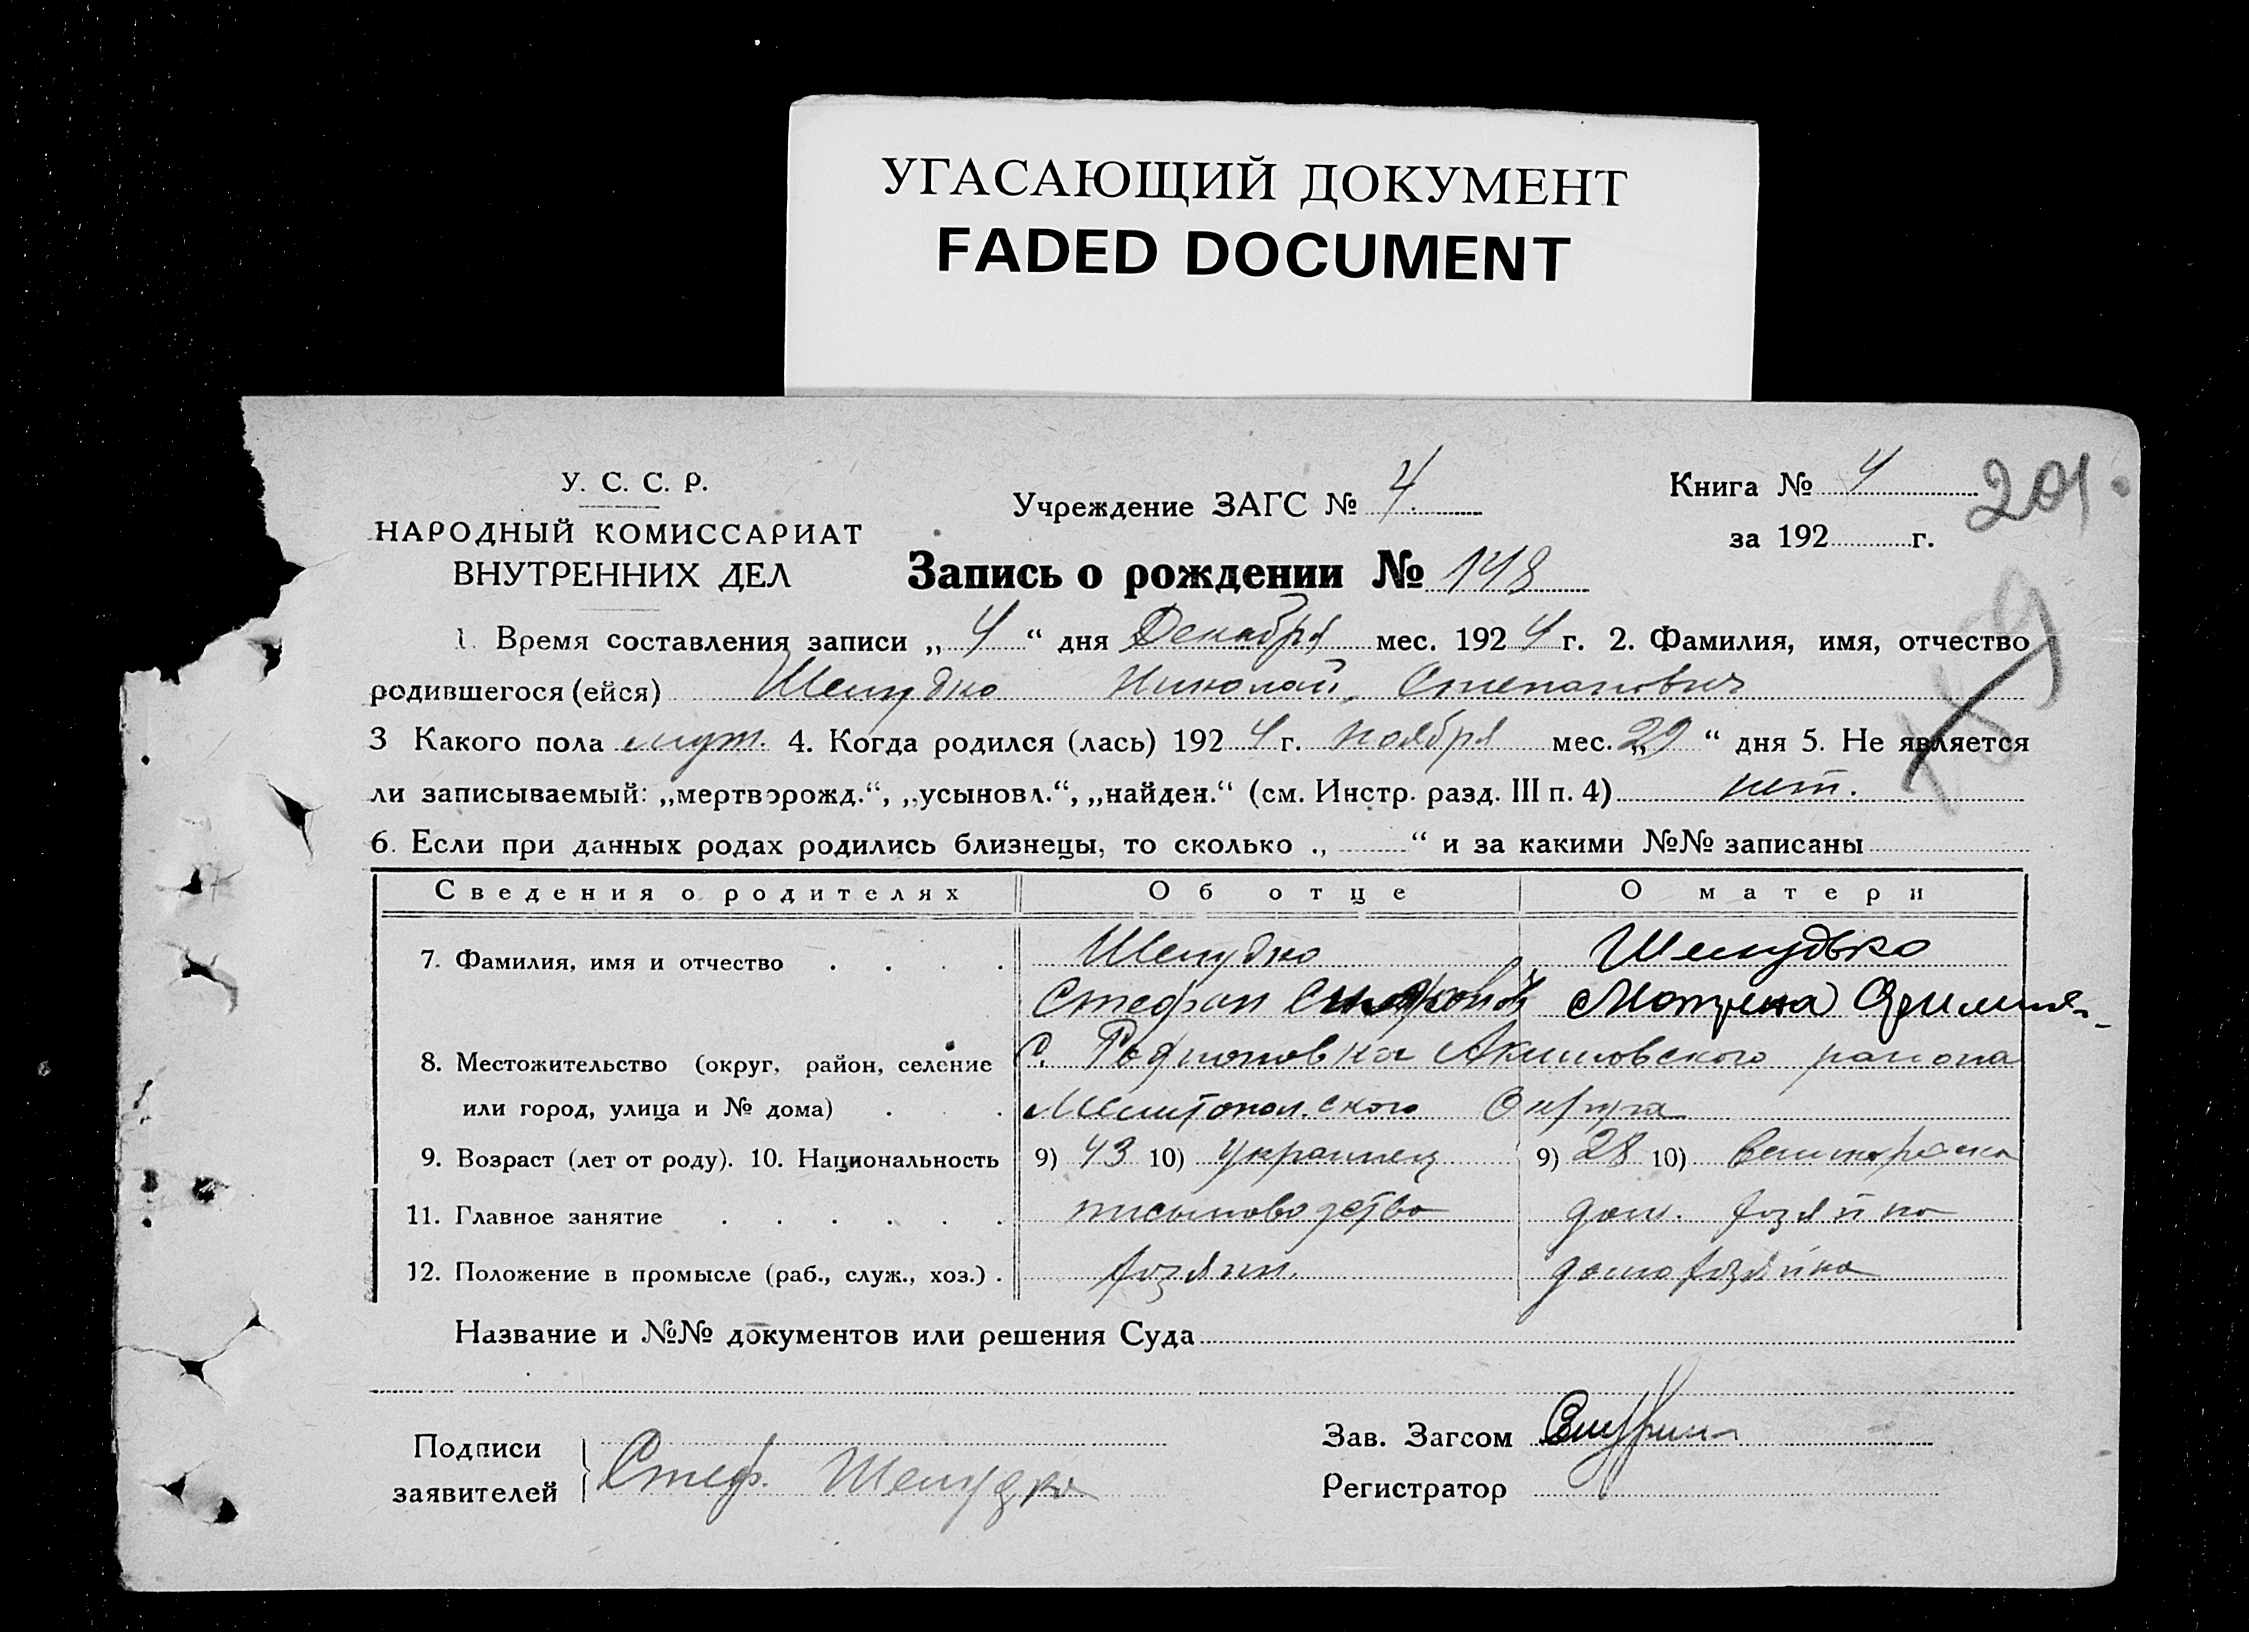 УГАСАЮЩИЙ ДОКУМЕНТ
FADED DOCUMENT
У. С. С. Р.
НАРОДНЫЙ КОМИССАРИАТ
ВНУТРЕННИХ ДЕЛ
Учреждение ЗАГС № 4.
Книга № 4
201
за 192 г.
Запись о рождении № 148
1. Время составления записи „ 4 “ дня Декабря мес. 192 4 г. 2. Фамилия, имя, отчество
родившегося (ейся) Шелудко Николай Степанович
3 Какого пола муж. 4. Когда родился (лась) 192 4 г. ноября мес. „ 29 “ дня 5. Не является
ли записываемый: „мертворожд.“, „усыновл.“, „найден.“ (см. Инстр. разд. III п. 4) нет.
6. Если при данных родах родились близнецы, то сколько „ “ и за какими №№ записаны
Сведения о родителях Об отце О матери
7. Фамилия, имя и отчество Шелудко Шелудько
Стефан Мотрена
8. Местожительство (округ, район, селение С. Родионовка Акимовского района
или город, улица и № дома) Мелитопол.ского Округа
9. Возраст (лет от роду). 10. Национальность 9) 43 10) Украинец 9) 28 10) Великороска
11. Главное занятие письмоводство дом. хозяйка
12. Положение в промысле (раб., служ., хоз.) хозяин. домохозяйка
Название и №№ документов или решения Суда
Подписи
заявителей Стеф. Шелудко
Зав. Загсом
Регистратор